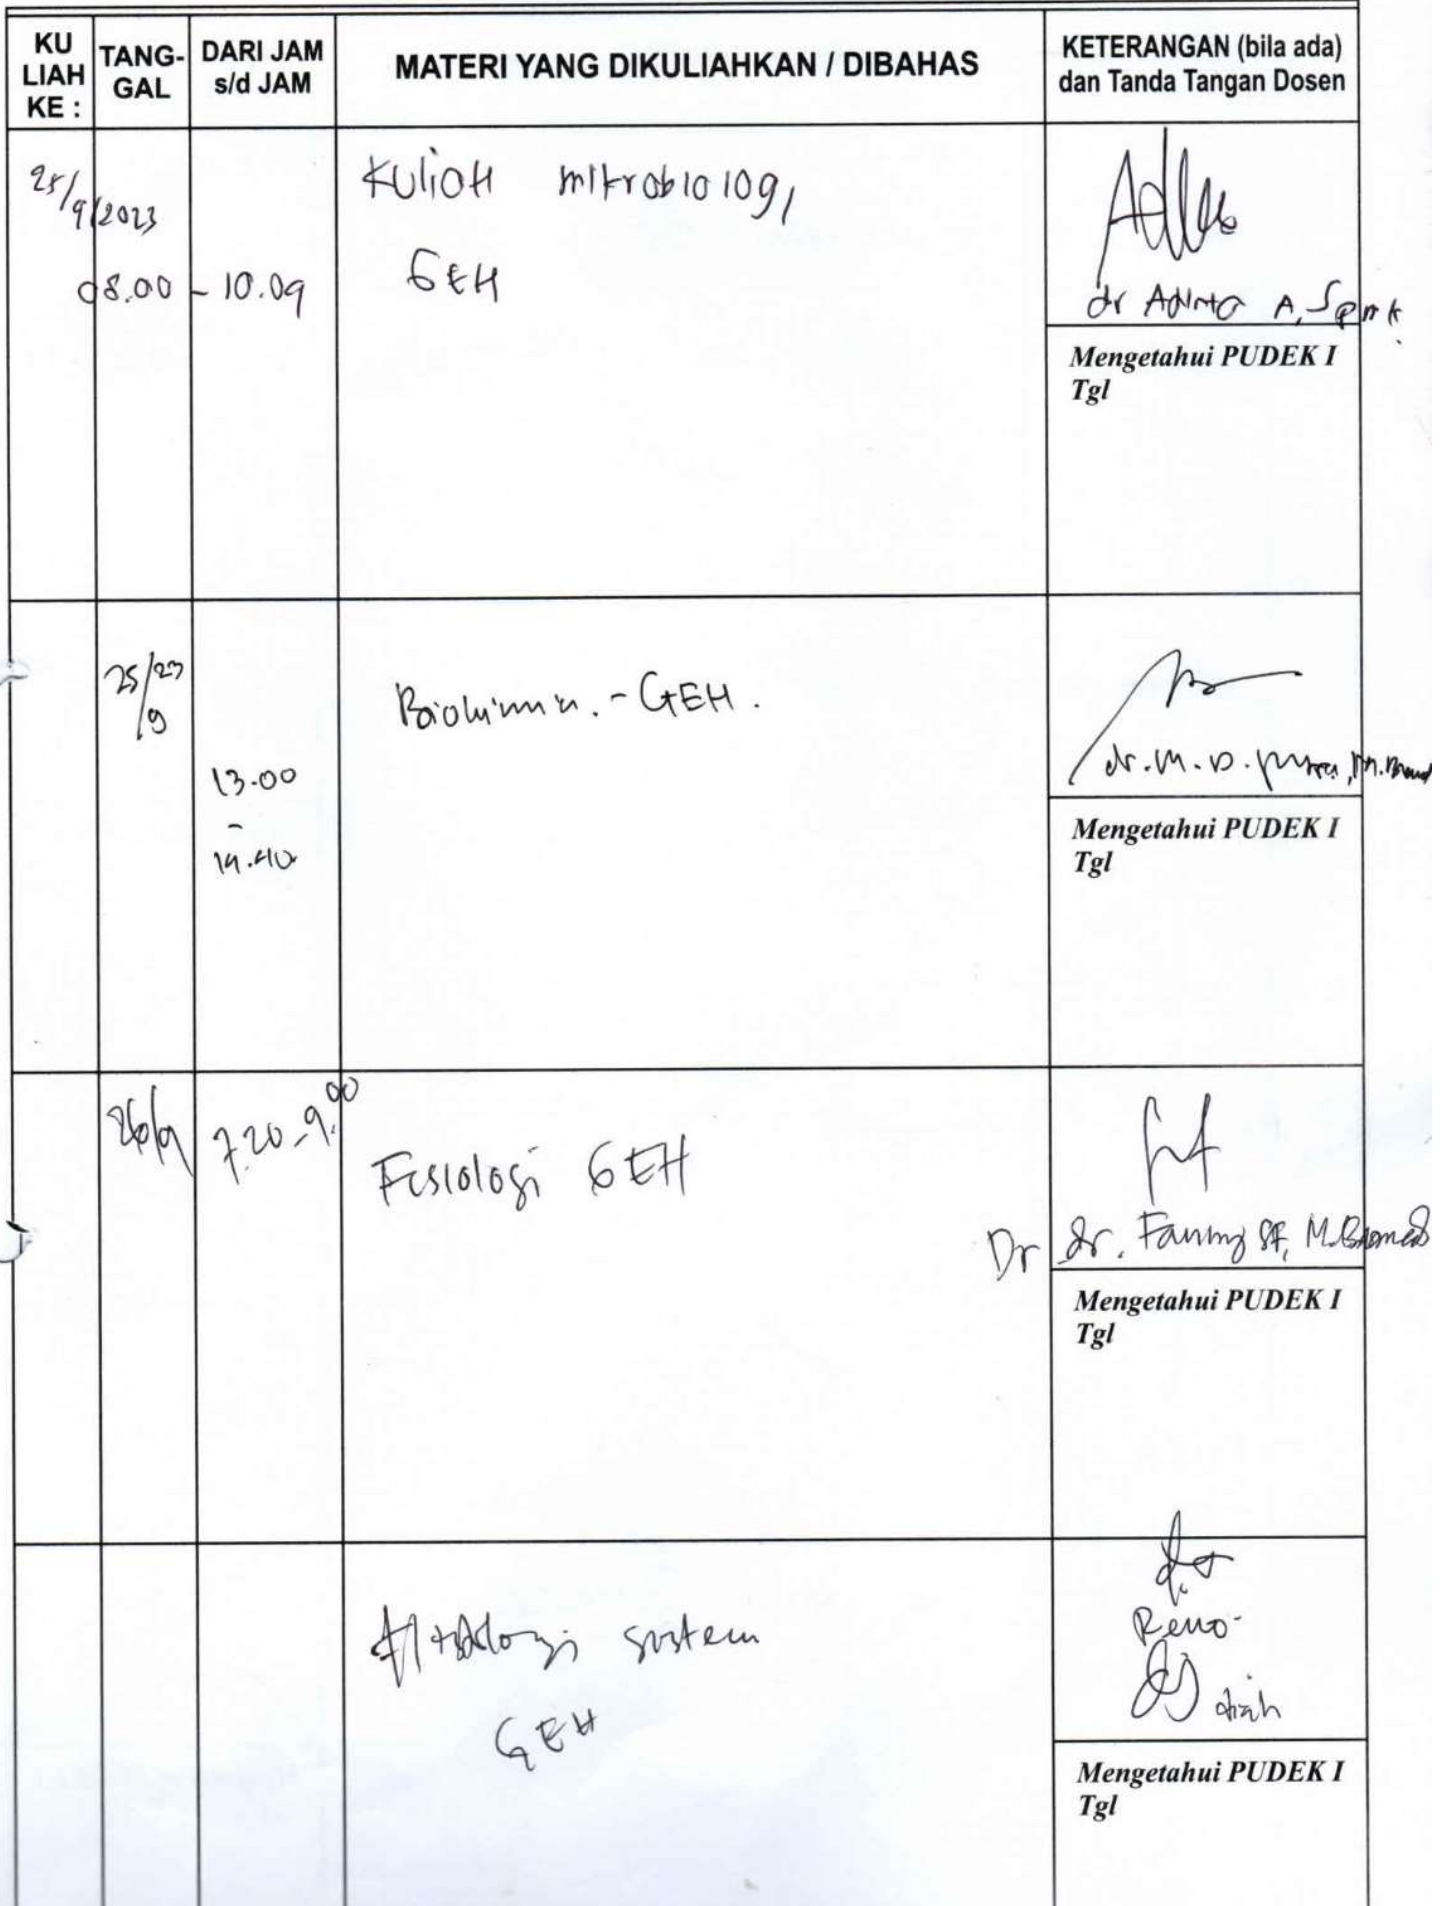 KU LIAH KE :
TANG-GAL
DARI JAM s/d JAM
MATERI YANG DIKULIAHKAN / DIBAHAS
KETERANGAN (bila ada) dan Tanda Tangan Dosen
25/9/2023
08.00 - 10.09
Kuliah mikrobiologi
GEH
A, SpMK
Mengetahui PUDEK I
Tgl
25/23
/9
13.00
-
14.40
Biokimia. - GEH.
dr. M. D.
Mengetahui PUDEK I
Tgl
26/9
7.20 - 9.00
Fisiologi GEH
Dr dr. Fanny SF, M.Biomed
Mengetahui PUDEK I
Tgl
sistem
GEH
Reno
diah
Mengetahui PUDEK I
Tgl